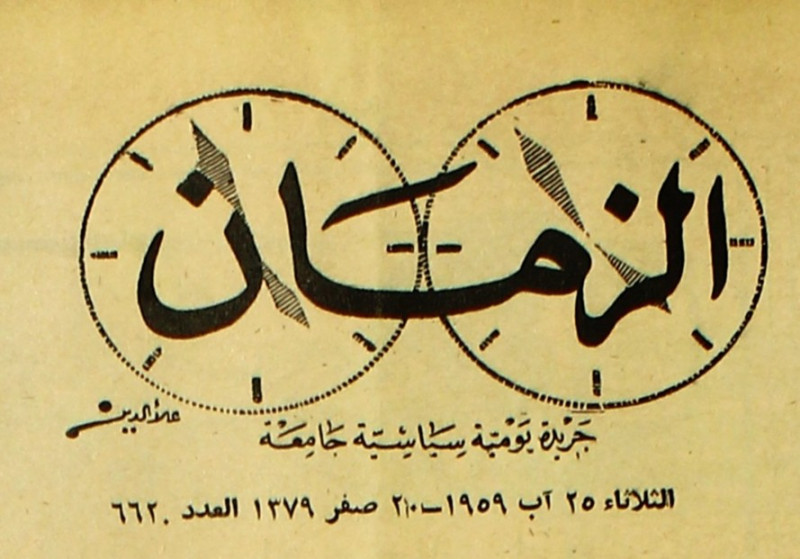 الزمان
علاء الدين
جريدة يومية سياسية جامعة
الثلاثاء ٢٥ آب ١٩٥٩ــ٢٠ صفر ١٣٧٩ العدد ٦٦٢٠